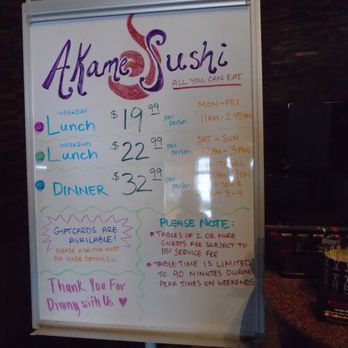 Akame Sushi
ALL YOU CAN EAT
WEEKDAY
Lunch $19.99 per person MON-FRI
11AM-2:15PM
WEEKEND
Lunch $22.99 per person SAT-SUN
12PM-3PM
DINNER $32.99 per person
GIFTCARDS ARE
AVAILABLE!
PLEASE ASK THE HOST
FOR MORE DETAILS
Thank You For
Dining with Us
PLEASE NOTE:
* TABLES OF 2 OR MORE
GUESTS ARE SUBJECT TO
18% SERVICE FEE
* TABLE TIME IS LIMITED
TO 90 MINUTES DURING
PEAK TIMES ON WEEKENDS